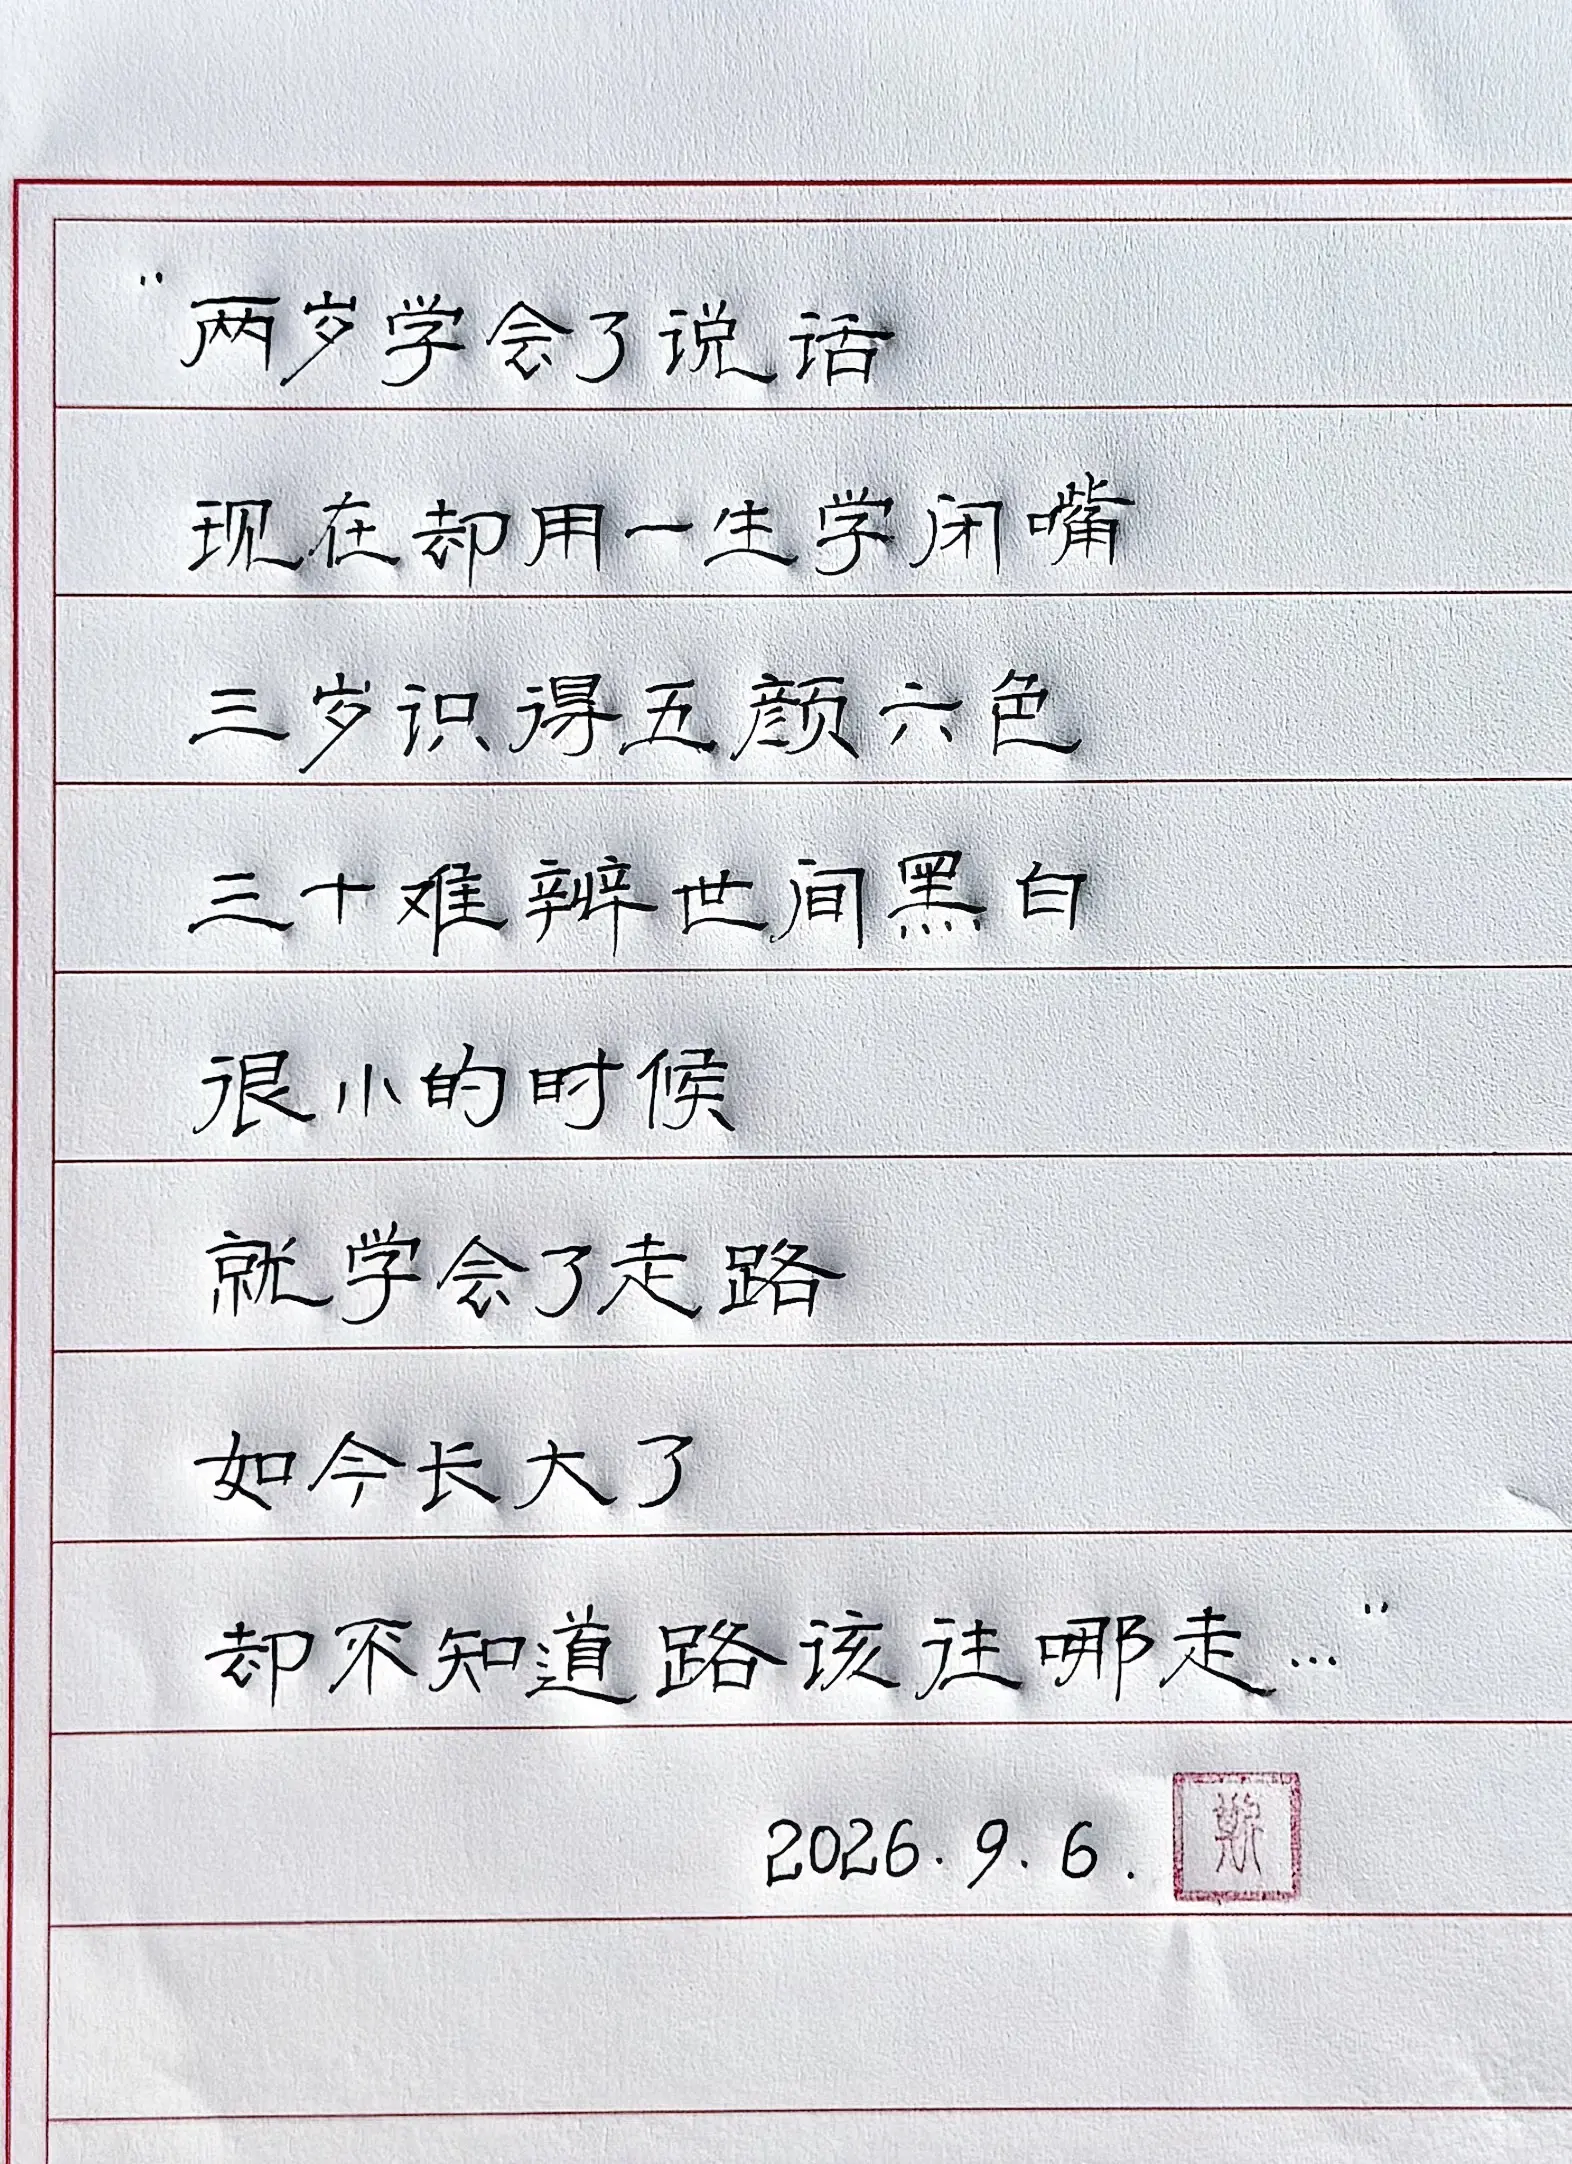 “两岁学会了说话
现在却用一生学闭嘴
三岁识得五颜六色
三十难辨世间黑白
很小的时候
就学会了走路
如今长大了
却不知道路该往哪走…”
2026.9.6.